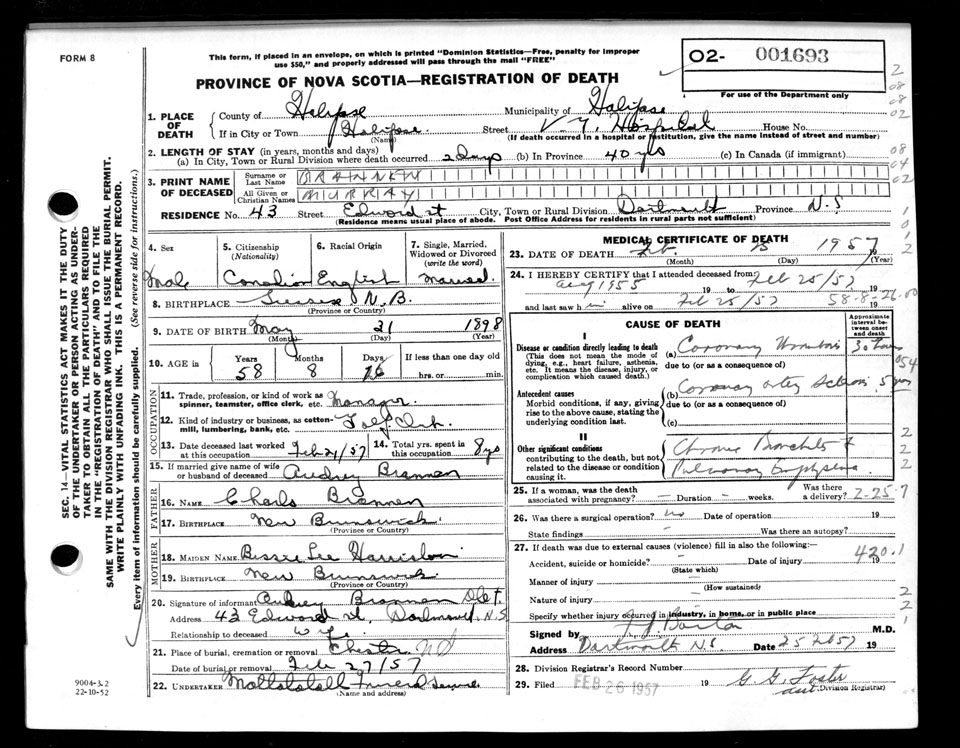 FORM 8
This form, if placed in an envelope, on which is printed "Dominion Statistics—Free, penalty for improper
use $50," and properly addressed will pass through the mail "FREE"
O2- 001693
For use of the Department only
PROVINCE OF NOVA SCOTIA—REGISTRATION OF DEATH
1. PLACE OF DEATH
County of Halifax Municipality of Halifax
If in City or Town Halifax Street V.G. Hospital House No.
(Name) (If death occurred in a hospital or institution, give the name instead of street and number)
2. LENGTH OF STAY (in years, months and days)
(a) In City, Town or Rural Division where death occurred 2 Days (b) In Province 40 yrs (c) In Canada (if immigrant)
3. PRINT NAME OF DECEASED
Surname or Last Name BRANNEN
All Given or Christian Names MURRAY
RESIDENCE No. 43 Street Edward st City, Town or Rural Division Dartmouth Province N.S
(Residence means usual place of abode. Post Office Address for residents in rural parts not sufficient)
4. Sex
Male
5. Citizenship (Nationality)
Canadian
6. Racial Origin
English
7. Single, Married, Widowed or Divorced (write the word)
Married
8. BIRTHPLACE Sussex N.B.
(Province or Country)
9. DATE OF BIRTH May 31 1898
(Month) (Day) (Year)
10. AGE in Years Months Days If less than one day old
58 8 hrs. or min.
OCCUPATION
11. Trade, profession, or kind of work as spinner, teamster, office clerk, etc. Manager
12. Kind of industry or business, as cotton-mill, lumbering, bank, etc. Golf Club
13. Date deceased last worked at this occupation Feb 21/57 14. Total yrs. spent in this occupation 8 yrs
15. If married give name of wife or husband of deceased Audrey Brannen
FATHER
16. NAME Charles Brannen
17. BIRTHPLACE New Brunswick
(Province or Country)
MOTHER
18. MAIDEN NAME Bessie Lee Harrison
19. BIRTHPLACE New Brunswick
(Province or Country)
20. Signature of informant Audrey Brannen
Address 43 Edward st, Dartmouth, N.S
Relationship to deceased wife
21. Place of burial, cremation or removal Chester NS
Date of burial or removal Feb 27/57
22. UNDERTAKER Mattatall Funeral Service
(Name and address)
MEDICAL CERTIFICATE OF DEATH
23. DATE OF DEATH Feb. 25 1957
(Month) (Day) (Year)
24. I HEREBY CERTIFY that I attended deceased from
Aug 1955 19 to Feb 25/57 19
and last saw him alive on Feb 25/57 19
58-8-26.00
CAUSE OF DEATH
Approximate interval between onset and death
I
Disease or condition directly leading to death
(This does not mean the mode of dying, e.g., heart failure, asthenia, etc. It means the disease, injury, or complication which caused death.)
(a) Coronary Thrombosis 30 hours
due to (or as a consequence of)
Antecedent causes
Morbid conditions, if any, giving rise to the above cause, stating the underlying condition last.
(b) Coronary artery Sclerosis 5 years
due to (or as a consequence of)
(c)
II
Other significant conditions
contributing to the death, but not related to the disease or condition causing it.
Chronic Bronchitis &
Pulmonary Emphysema
25. If a woman, was the death associated with pregnancy? — Duration — weeks. Was there a delivery?
2-25.7
26. Was there a surgical operation? no Date of operation 19
State findings — Was there an autopsy?
27. If death was due to external causes (violence) fill in also the following:—
Accident, suicide or homicide? Date of injury 19
(State which)
420.1
Manner of injury
(How sustained)
Nature of injury
Specify whether injury occurred in industry, in home, or in public place
Signed by Barton M.D.
Address Dartmouth N.S. Date 25 2 57 19
28. Division Registrar's Record Number
29. Filed FEB 26 1957 19 G. G. Foster
Division Registrar)
SEC. 14—VITAL STATISTICS ACT MAKES IT THE DUTY
OF THE UNDERTAKER OR PERSON ACTING AS UNDER-
TAKER TO OBTAIN ALL THE PARTICULARS REQUIRED
IN THE "REGISTRATION OF DEATH" AND TO FILE THE
SAME WITH THE DIVISION REGISTRAR WHO SHALL ISSUE THE BURIAL PERMIT.
WRITE PLAINLY WITH UNFADING INK. THIS IS A PERMANENT RECORD.
Every item of information should be carefully supplied. (See reverse side for instructions.)
9004-3.2
22-10-52